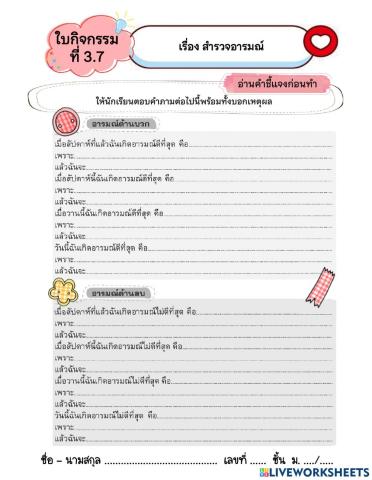 ใบกิจกรรม
ที่ 3.7
เรื่อง สำรวจอารมณ์
อ่านคำชี้แจงก่อนทำ
ให้นักเรียนตอบคำถามต่อไปนี้พร้อมทั้งบอกเหตุผล
อารมณ์ด้านบวก
เมื่อสัปดาห์ที่แล้วฉันเกิดอารมณ์ดีที่สุด คือ
เพราะ
แล้วฉันจะ
เมื่อสัปดาห์นี้ฉันเกิดอารมณ์ดีที่สุด คือ
เพราะ
แล้วฉันจะ
เมื่อวานนี้ฉันเกิดอารมณ์ดีที่สุด คือ
เพราะ
แล้วฉันจะ
วันนี้ฉันเกิดอารมณ์ดีที่สุด คือ
เพราะ
แล้วฉันจะ
อารมณ์ด้านลบ
เมื่อสัปดาห์ที่แล้วฉันเกิดอารมณ์ไม่ดีที่สุด คือ
เพราะ
แล้วฉันจะ
เมื่อสัปดาห์นี้ฉันเกิดอารมณ์ไม่ดีที่สุด คือ
เพราะ
แล้วฉันจะ
เมื่อวานนี้ฉันเกิดอารมณ์ไม่ดีที่สุด คือ
เพราะ
แล้วฉันจะ
วันนี้ฉันเกิดอารมณ์ไม่ดีที่สุด คือ
เพราะ
แล้วฉันจะ
ชื่อ - นามสกุล ........................................ เลขที่ ...... ชั้น ม. ..../.....
LIVEWORKSHEETS